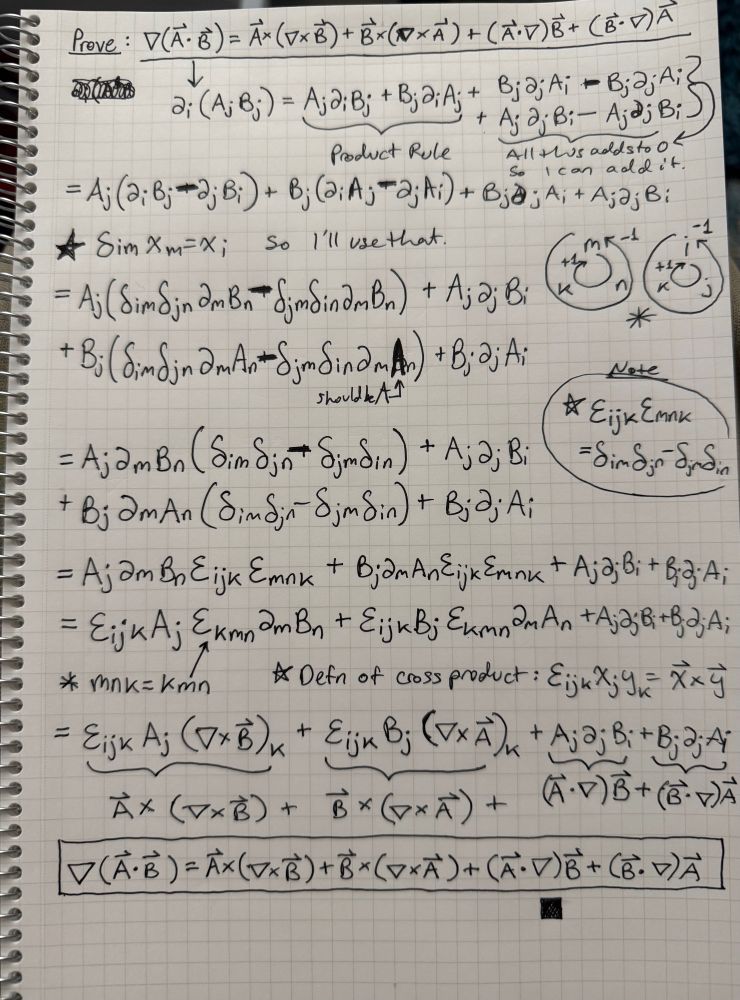 Prove: ∇(A⃗·B⃗) = A⃗×(∇×B⃗) + B⃗×(∇×A⃗) + (A⃗·∇)B⃗ + (B⃗·∇)A⃗
∂ᵢ(AⱼBⱼ) = Aⱼ∂ᵢBⱼ + Bⱼ∂ᵢAⱼ + Bⱼ∂ⱼAᵢ - Bⱼ∂ⱼAᵢ
+ Aⱼ∂ⱼBᵢ - Aⱼ∂ⱼBᵢ
Product Rule
All this adds to 0
so I can add it.
= Aⱼ(∂ᵢBⱼ - ∂ⱼBᵢ) + Bⱼ(∂ᵢAⱼ - ∂ⱼAᵢ) + Bⱼ∂ⱼAᵢ + Aⱼ∂ⱼBᵢ
★ δim Xm = Xi so I'll use that.
m -1
+1
k n
i -1
+1
k j
*
= Aj(δim δjn ∂mBn - δjm δin ∂mBn) + Aj∂jBi
+ Bj(δim δjn ∂mAn - δjm δin ∂mAn) + Bj∂jAi
should be A
Note
☆ εijk εmnk
= δim δjn - δjm δin
= Aj∂mBn(δim δjn - δjm δin) + Aj∂jBi
+ Bj∂mAn(δim δjn - δjm δin) + Bj∂jAi
= Aj∂mBn εijk εmnk + Bj∂mAn εijk εmnk + Aj∂jBi + Bj∂jAi
= εijk Aj εkmn ∂mBn + εijk Bj εkmn ∂mAn + Aj∂jBi + Bj∂jAi
* mnk = kmn ☆ Defn of cross product: εijk xj yk = x⃗×y⃗
= εijk Aj (∇×B⃗)k + εijk Bj (∇×A⃗)k + Aj∂jBi + Bj∂jAi
A⃗×(∇×B⃗) + B⃗×(∇×A⃗) + (A⃗·∇)B⃗ + (B⃗·∇)A⃗
∇(A⃗·B⃗) = A⃗×(∇×B⃗) + B⃗×(∇×A⃗) + (A⃗·∇)B⃗ + (B⃗·∇)A⃗